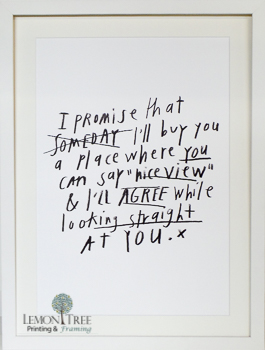 I PROMISE that
SOMEDAY I'll buy you
a place where you
can say "nice view"
& I'll AGREE while
looking straight
AT YOU. x
LEMON TREE
Printing & framing